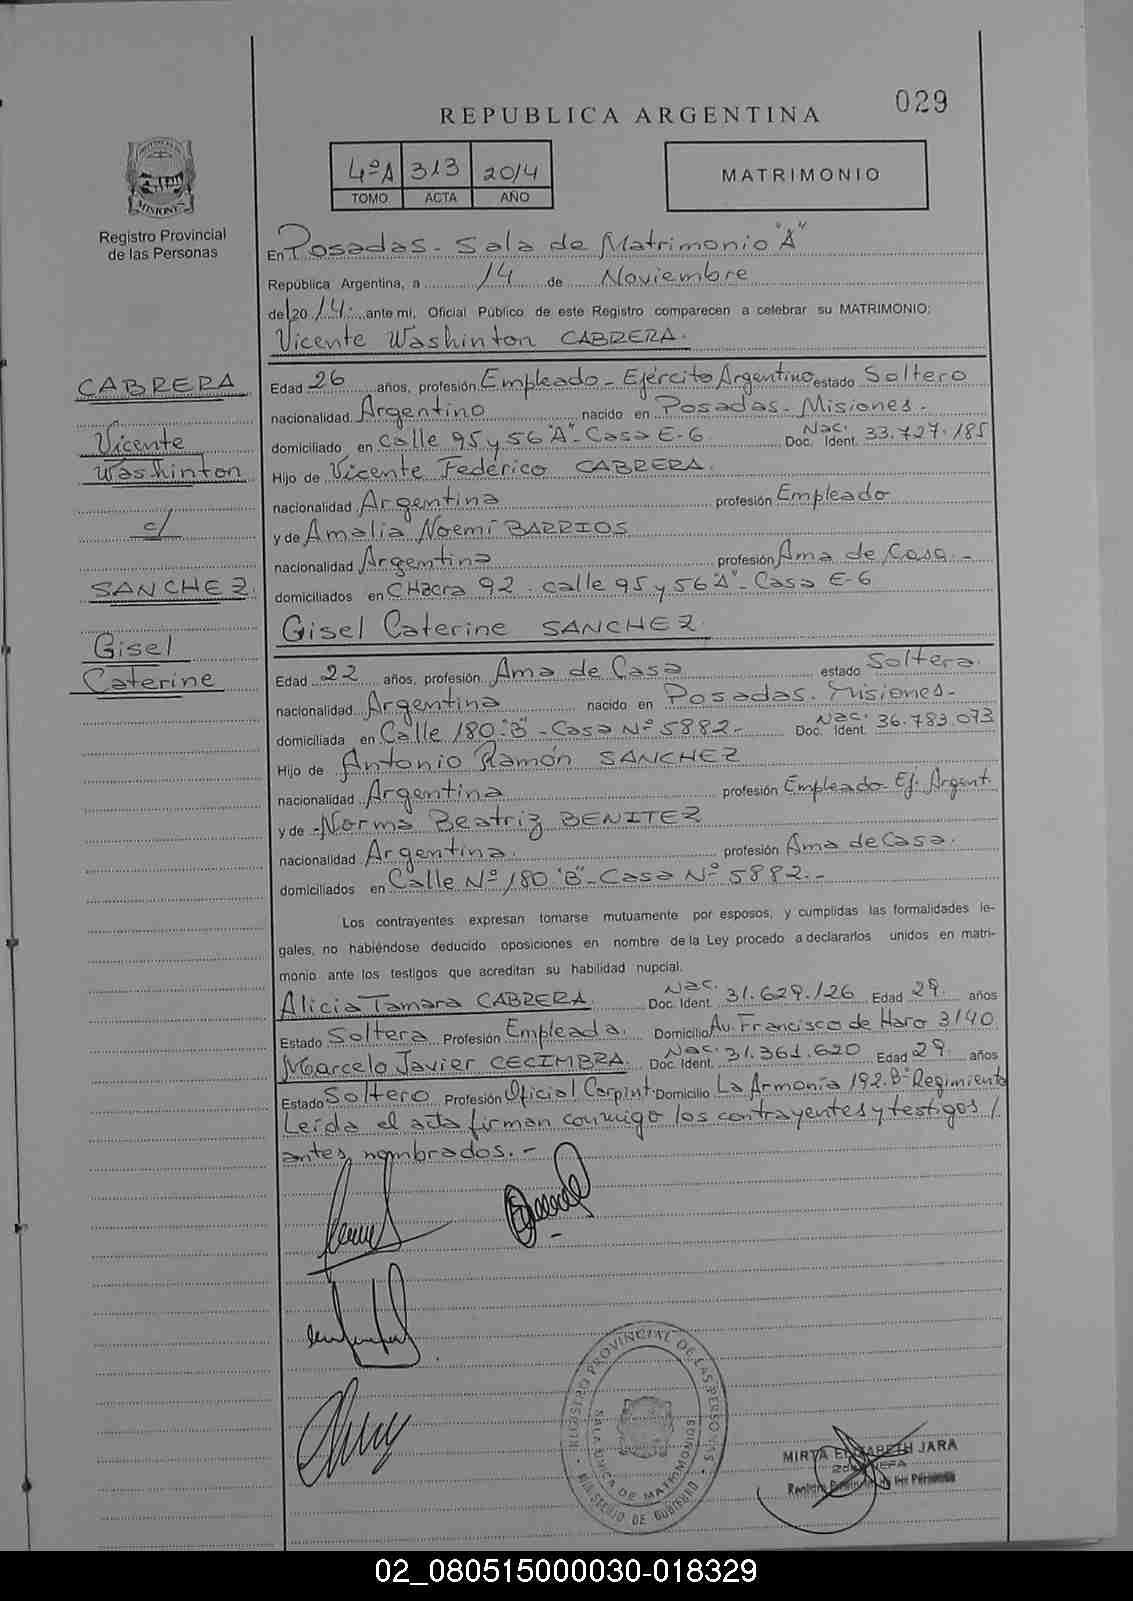 029
REPUBLICA ARGENTINA
4ºA 313 2014
TOMO ACTA AÑO
MATRIMONIO
PROVINCIA DE
MISIONES
Registro Provincial
de las Personas
En Posadas - Sala de Matrimonio "A"
República Argentina, a 14 de Noviembre
del 2014 ante mi, Oficial Público de este Registro comparecen a celebrar su MATRIMONIO:
Vicente Washinton CABRERA.
CABRERA
Vicente
Washinton
c/
SANCHEZ.
Gisel
Caterine
Edad 26 años, profesión Empleado - Ejército Argentino estado Soltero
nacionalidad Argentino nacido en Posadas - Misiones -
domiciliado en Calle 95 y 56 "A" - Casa E-6 Doc. Nac. Ident. 33.727.185
Hijo de Vicente Federico CABRERA.
nacionalidad Argentina profesión Empleado
y de Amalia Noemí BARRIOS
nacionalidad Argentina profesión Ama de Casa. -
domiciliados en CHacra 92 - calle 95 y 56 "A" - Casa E-6
Gisel Caterine SANCHEZ.
Edad 22 años, profesión Ama de Casa estado Soltera.
nacionalidad Argentina nacido en Posadas. Misiones -
domiciliada en Calle 180 "B" - Casa Nº 5882 - Doc. Nac. Ident. 36.783.073
Hijo de Antonio Ramón SANCHEZ
nacionalidad Argentina profesión Empleado - Ej. Argent.
y de - Norma Beatriz BENITEZ
nacionalidad Argentina. profesión Ama de Casa.
domiciliados en Calle Nº 180 "B" - Casa Nº 5882. -
Los contrayentes expresan tomarse mutuamente por esposos, y cumplidas las formalidades le-
gales, no habiéndose deducido oposiciones en nombre de la Ley procedo a declararlos unidos en matri-
monio ante los testigos que acreditan su habilidad nupcial.
Alicia Tamara CABRERA. Doc. Nac. Ident. 31.629.126 Edad 29. años
Estado Soltera Profesión Empleada. Domicilio Av. Francisco de Haro 3140
Marcelo Javier CECIMBRA. Doc. Nac. Ident. 31.361.620 Edad 29. años
Estado Soltero Profesión Oficial Carpint. Domicilio La Armonía 192.Bº Regimiento
Leída el acta firman conmigo los contrayentes y testigos /
antes nombrados. -
REGISTRO PROVINCIAL DE LAS PERSONAS
SALA UNICA DE MATRIMONIOS
MINISTERIO DE GOBIERNO
MIRTA ELIZABETH JARA
2da JEFA
Registro Provincial de las Personas
02_080515000030-018329